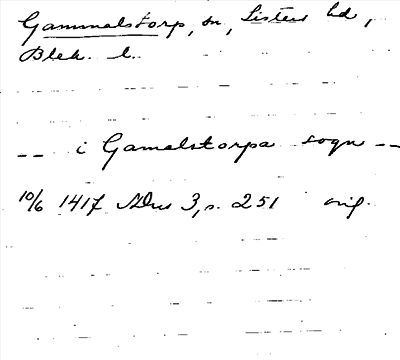 Gammalstorp, sn, Listers hd,
Blek. l.
-- i Gamalstorpa sogn --
10/6 1417 SDns 3, s. 251 orig.